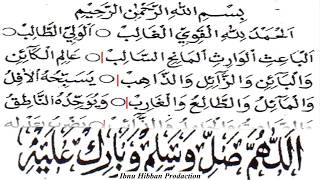 بِسْمِ اللهِ الرَّحْمٰنِ الرَّحِيْمِ
اَلْحَمْدُ لِلّٰهِ الْقَوِيِّ الْغَالِبْ ۞ اَلْوَلِيِّ الطَّالِبْ ۞
اَلْبَاعِثِ الْوَارِثِ الْمَانِحِ السَّالِبْ ۞ عَالِمِ الْكَائِنِ
وَالْبَائِنِ وَالزَّائِلِ وَالذَّاهِبْ ۞ يُسَبِّحُهُ الْآفِلُ
وَالْمَائِلُ وَالطَّالِعُ وَالْغَارِبْ ۞ وَيُوَحِّدُهُ النَّاطِقُ
اَللّٰهُمَّ صَلِّ وَسَلِّمْ وَبَارِكْ عَلَيْهِ
Ibnu Hibban Production